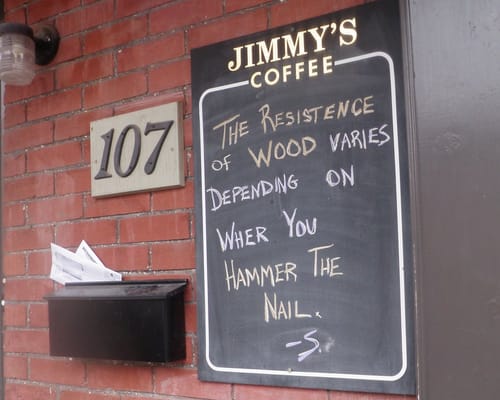 JIMMY'S
COFFEE
107
THE RESISTENCE
OF WOOD VARIES
DEPENDING ON
WHER YOU
HAMMER THE
NAIL.
-S.